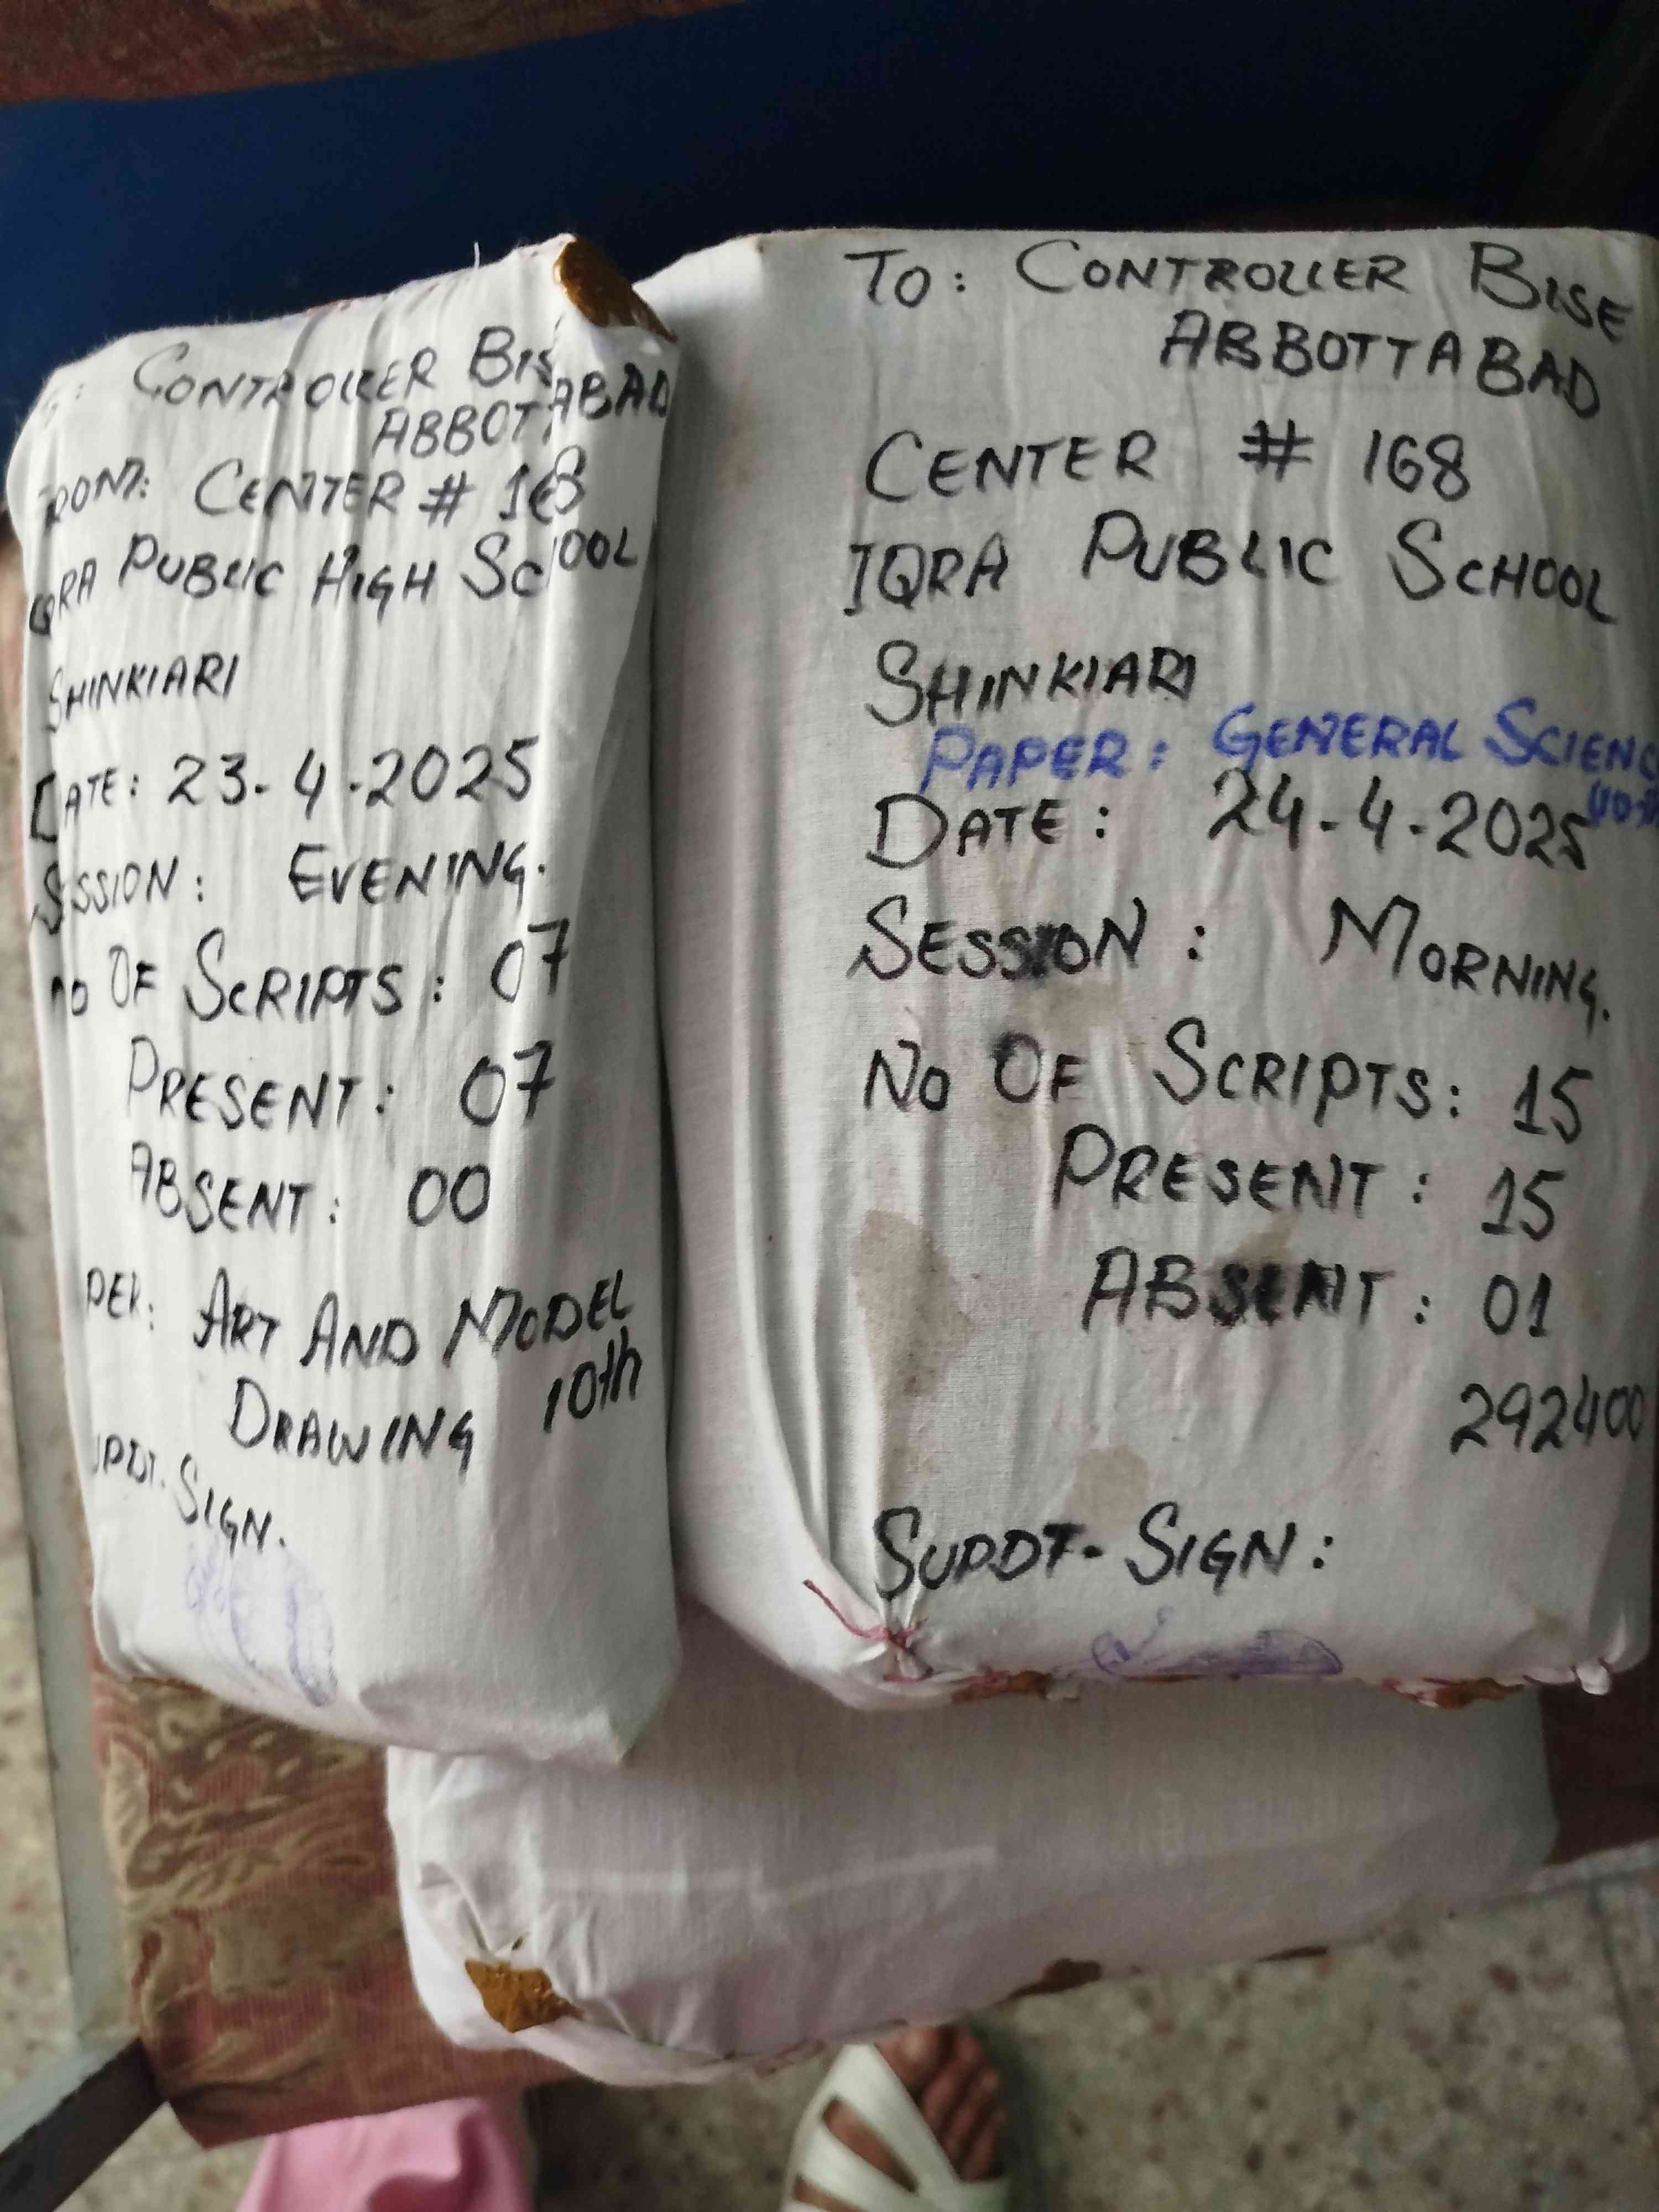 CONTROLLER BIS
ABBOTTABAD
FROM: CENTER # 168
IQRA PUBLIC HIGH SCHOOL
SHINKIARI
DATE: 23-4-2025
SESSION: EVENING.
NO OF SCRIPTS: 07
PRESENT: 07
ABSENT: 00
PER: ART AND MODEL
DRAWING 10th
UPDT. SIGN.
TO: CONTROLLER BISE
ABBOTTABAD
CENTER # 168
IQRA PUBLIC SCHOOL
SHINKIARI
PAPER: GENERAL SCIENC
10th
DATE: 24-4-2025
SESSION: MORNING.
NO OF SCRIPTS: 15
PRESENT: 15
ABSENT: 01
292400
SUPDT-SIGN: